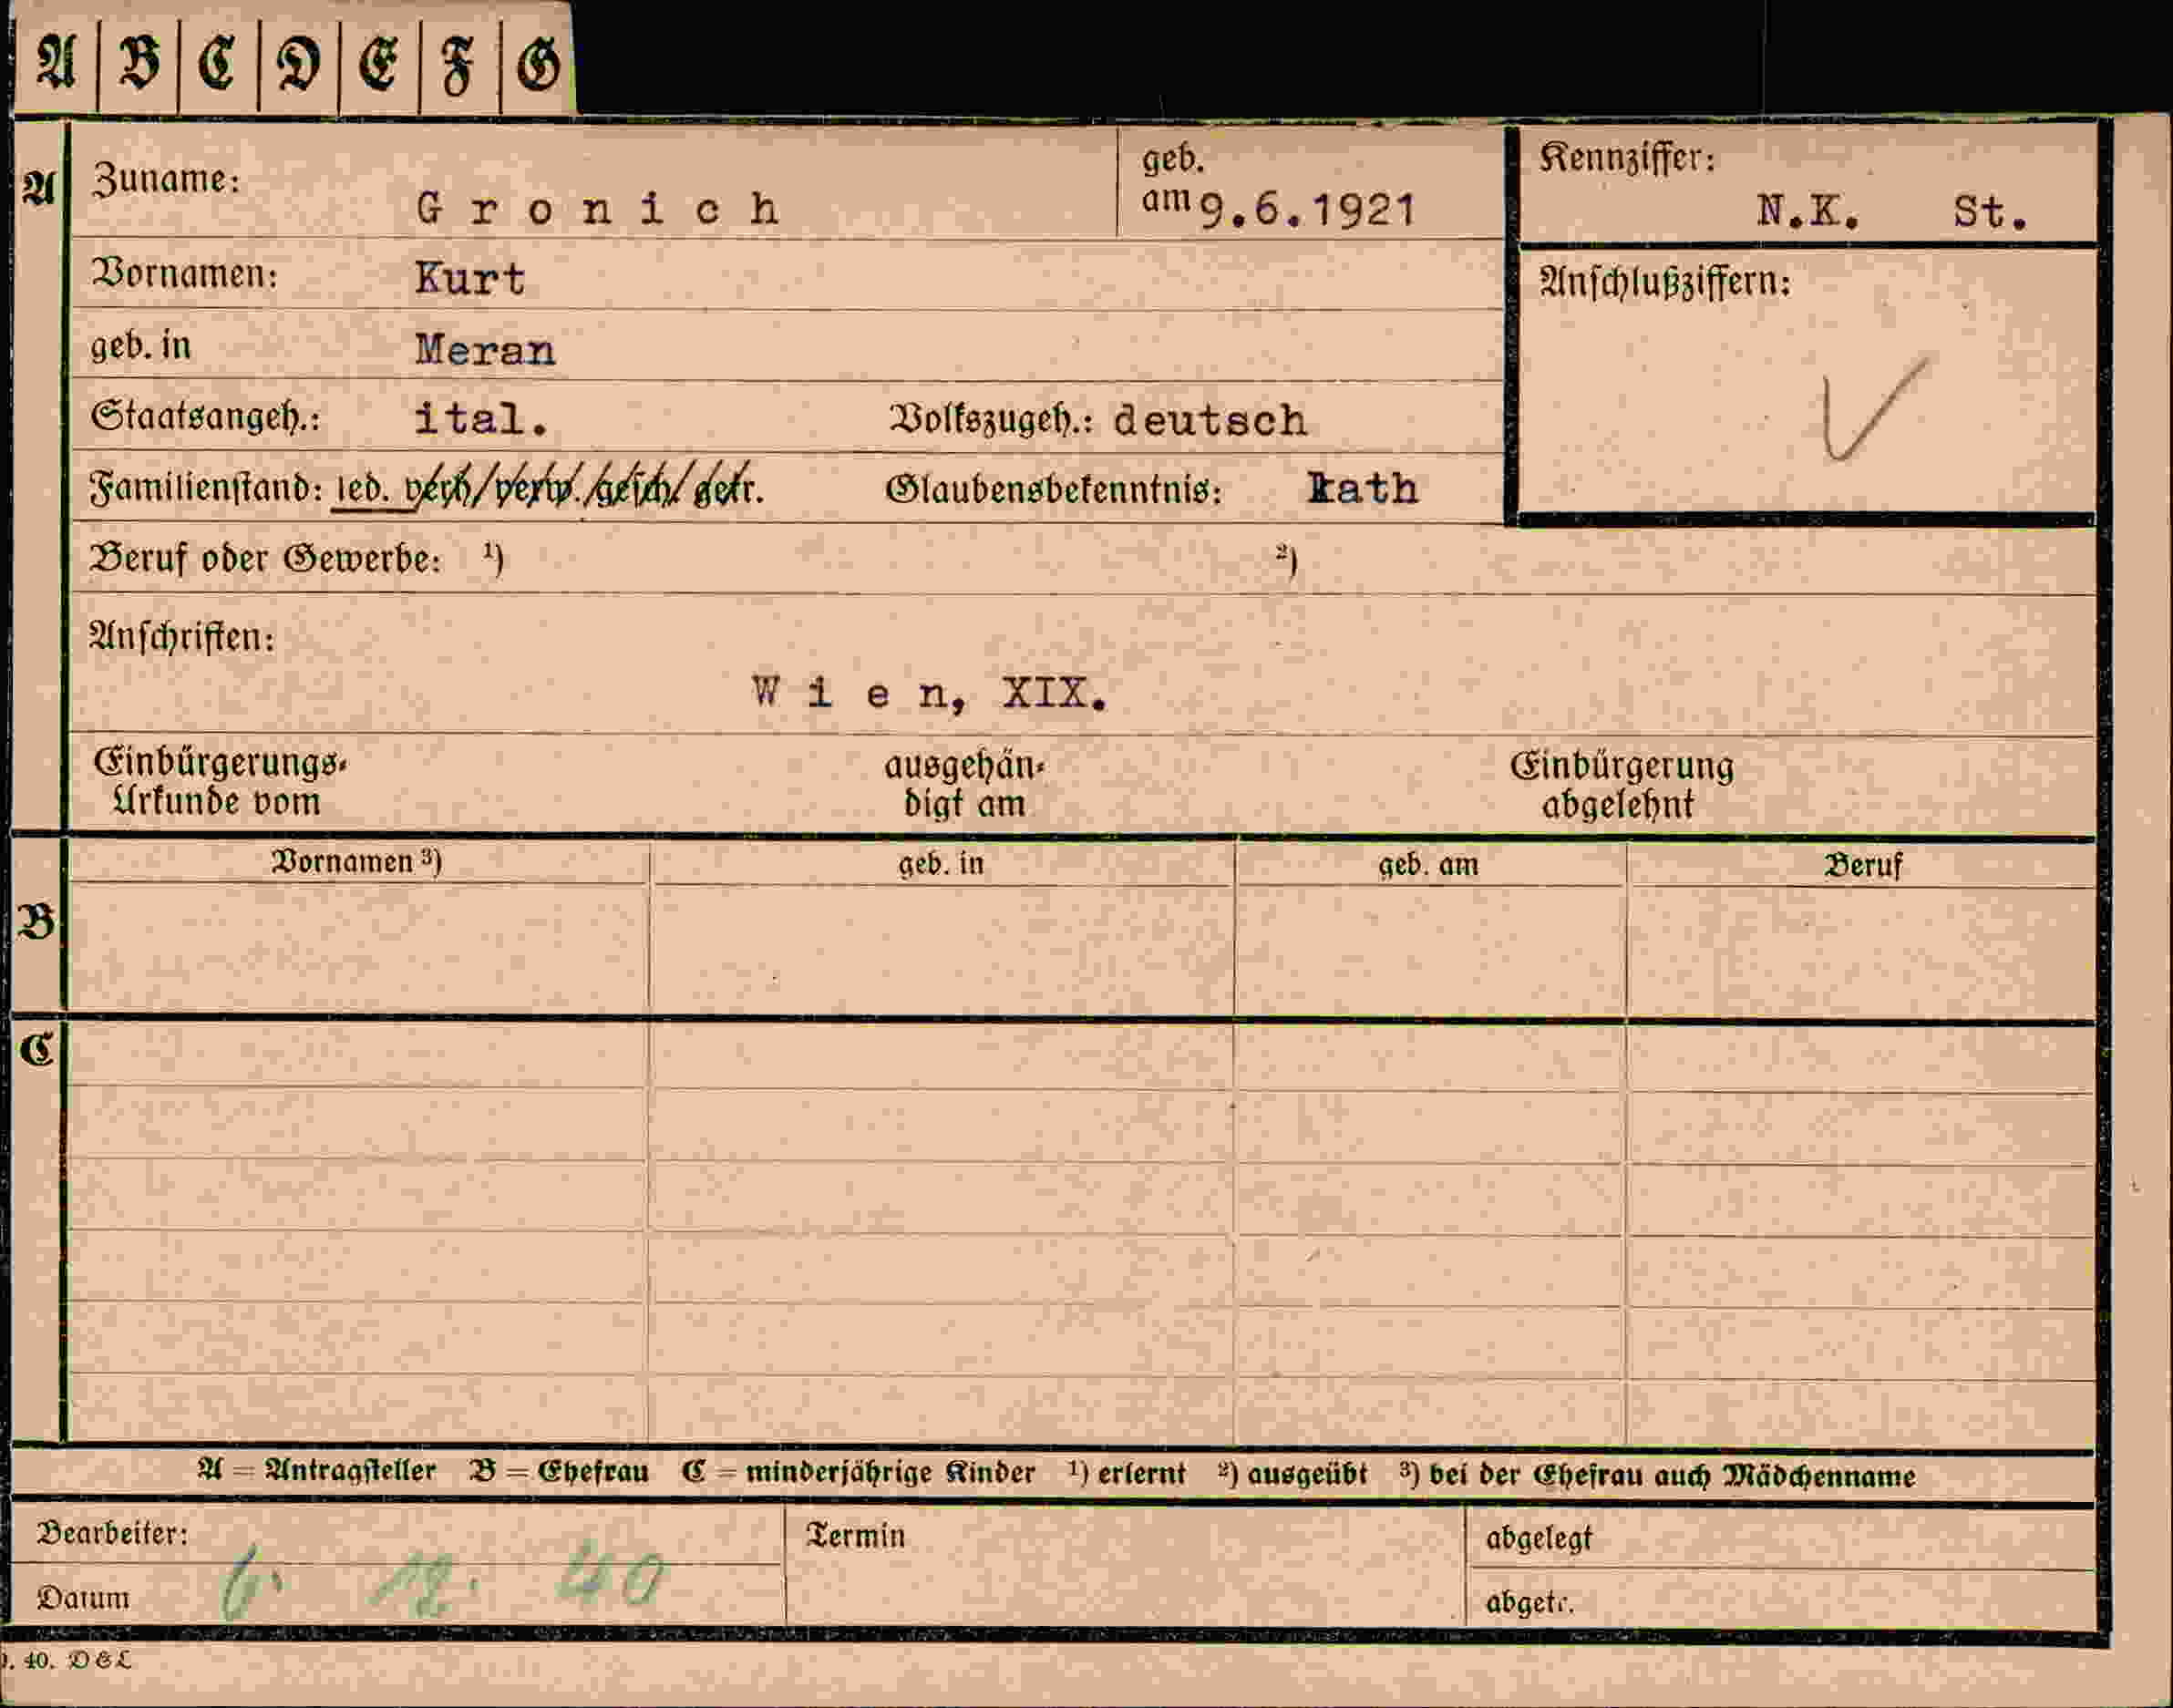 A B C D E F G
A Zuname: Gronich geb. am 9.6.1921 Kennziffer: N.K. St.
Vornamen: Kurt Anschlußziffern:
geb. in Meran
Staatsangeh.: ital. Volkszugeh.: deutsch
Familienstand: led. verh/verw./gesch/getr. Glaubensbekenntnis: kath
Beruf oder Gewerbe: ¹) ²)
Anschriften:
Wien, XIX.
Einbürgerungs- ausgehän- Einbürgerung
Urkunde vom digt am abgelehnt
Vornamen ³) geb. in geb. am Beruf
B
C
A = Antragsteller B = Ehefrau C = minderjährige Kinder ¹) erlernt ²) ausgeübt ³) bei der Ehefrau auch Mädchenname
Bearbeiter: Termin abgelegt
Datum 6. 12. 40 abgetr.
40. DGL